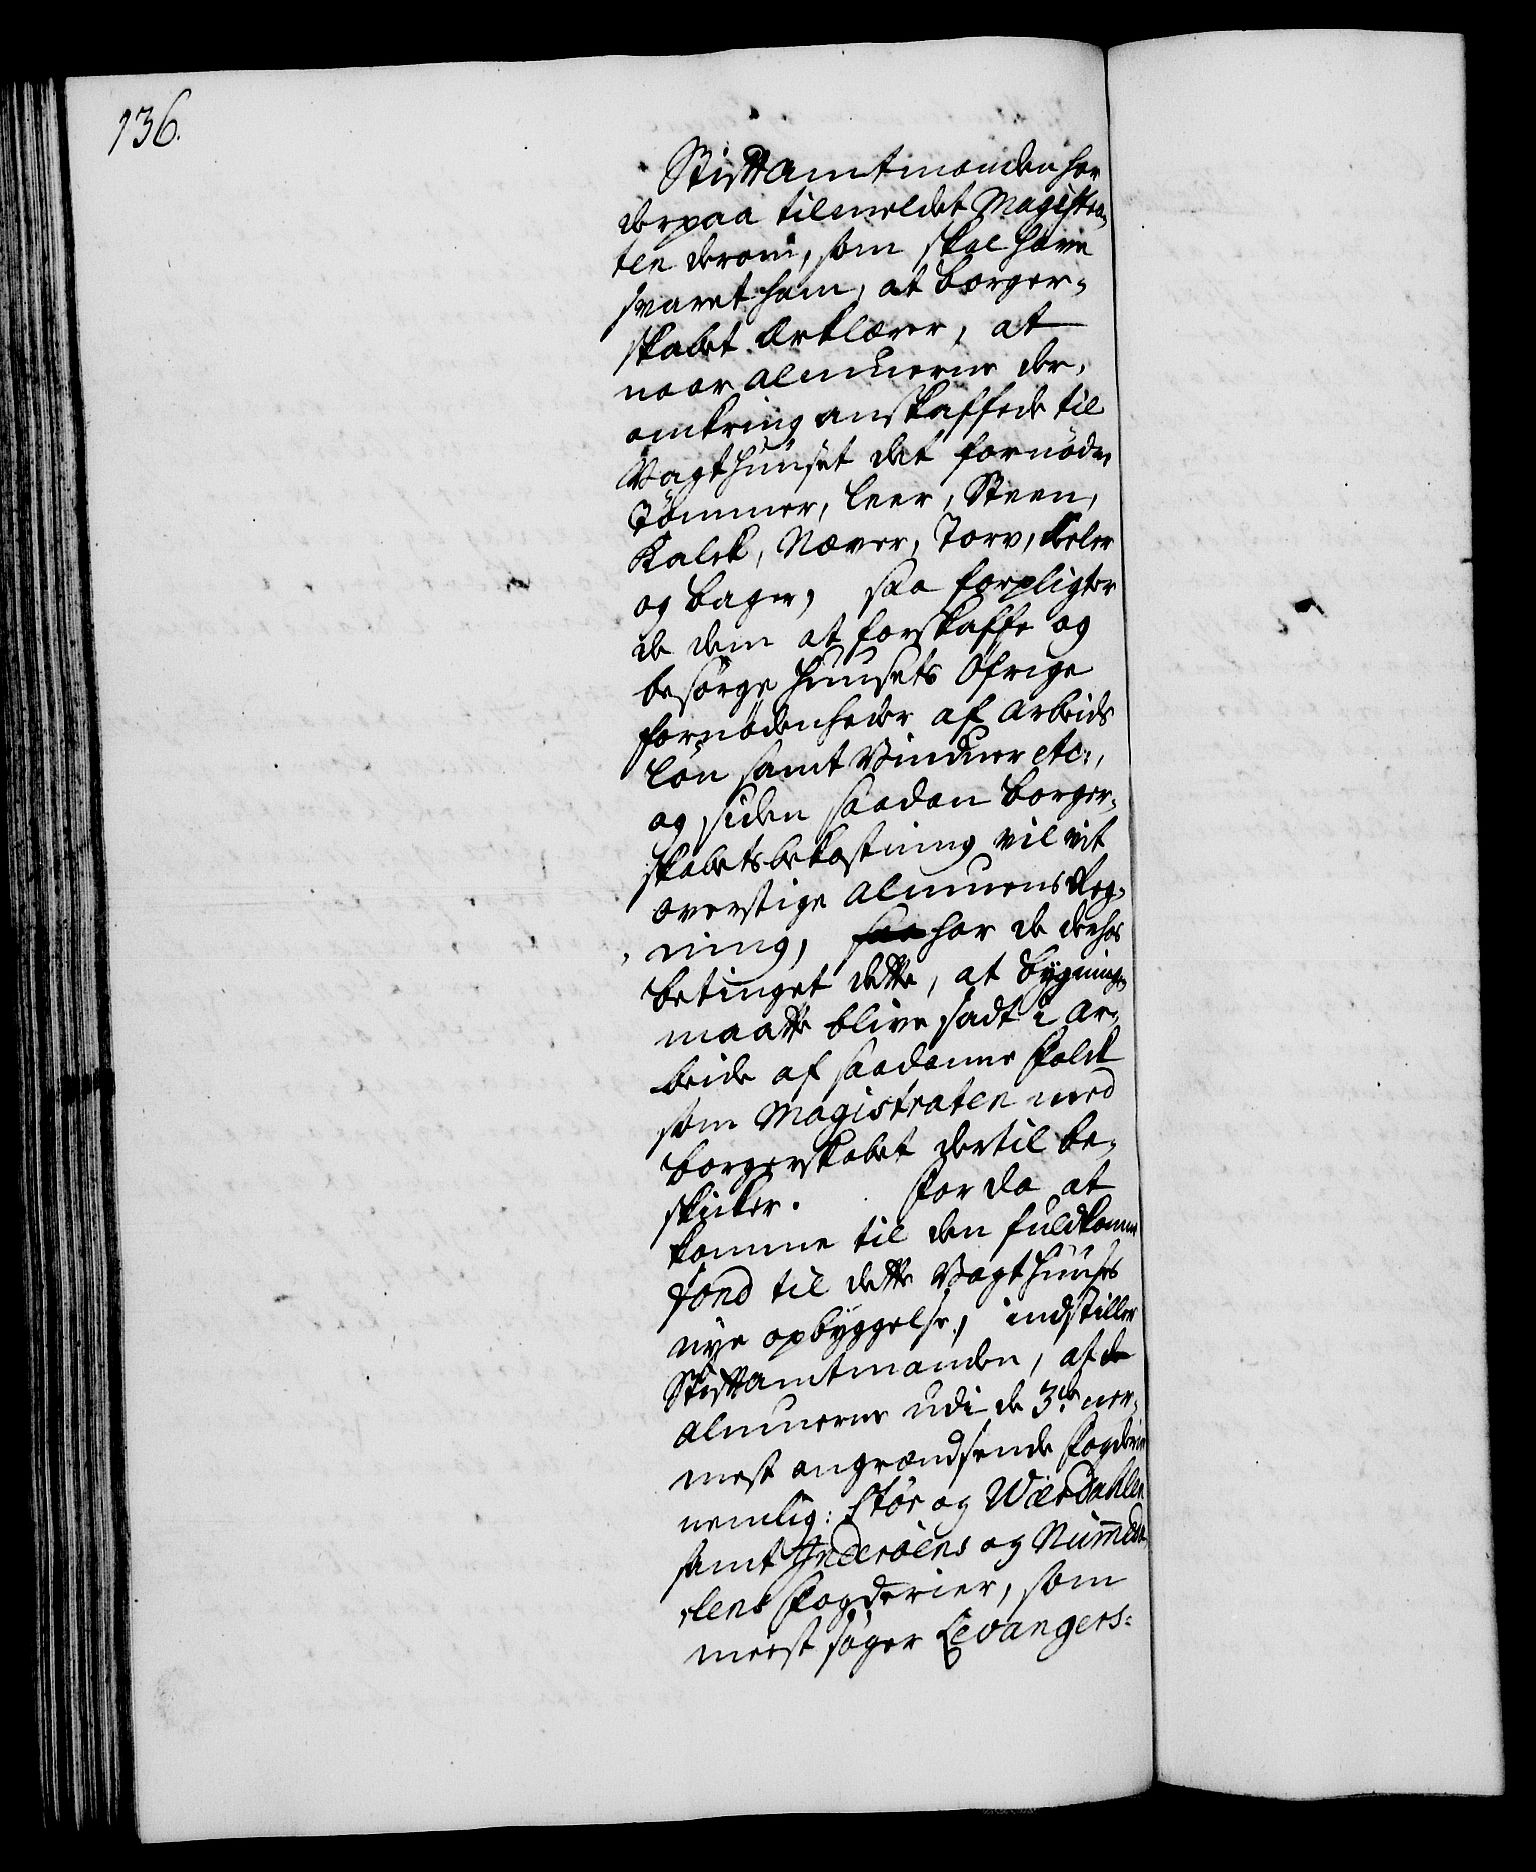 136.
Stiftamtmanden har
derpaa tilmeldet Magistra-
ten derom, som skal have
svaret ham, at Borger-
skabet erklærer, at
naar Almuerne der-
omkring anskaffede til
Vagthuuset det fornødne
Tømmer, Leer, Steen,
Kalck, Næver, Torv,
og Bager, saa forpligter
de dem at forskaffe og
besørge Huusets øfrige
Fornødenheder af Arbeids
Løn samt Vinduer etc:,
og siden saadan Borger-
skabets bekostning vil vit
overstige Almuens Reg-
ning, har de derhos
betinget dette, at Bygningen
maatte blive sadt i Ar-
beide af saadanne Folck
som Magistraten med
Borgerskabet dertil be-
skicker. For da at
komme til den fuldkomne
Fond til dette Vagthuuses
nye opbyggelse, indstiller
Stiftamtmanden, at de
Almuerne udi de 3de nær-
mest angrændsende Fogderier
nemlig: Stør og Wærdahlen
samt Inderøens og Nummeda-
lens Fogderier, som
meest søger Levangers-